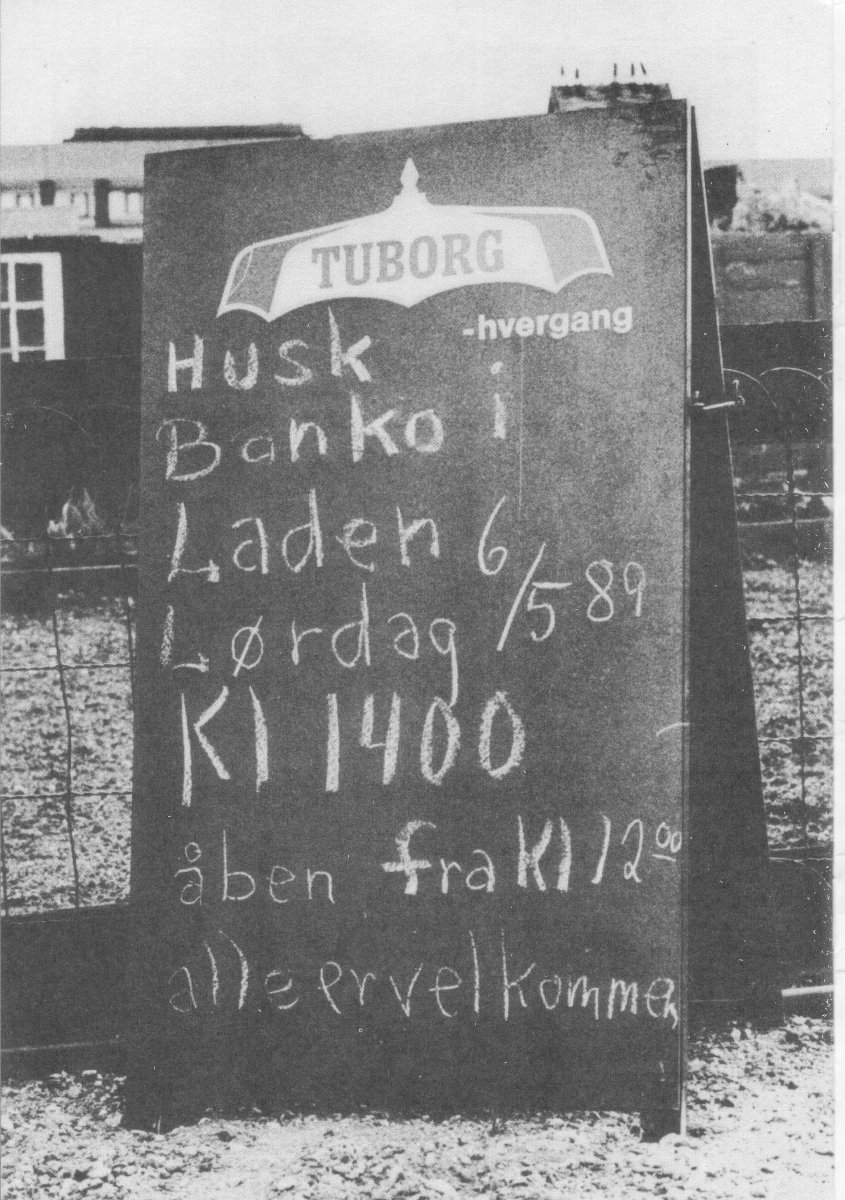 TUBORG
-hvergang
Husk
Banko i
Laden 6/5 89
Lørdag
Kl 1400
åben fra Kl 12 00
alle er velkommen